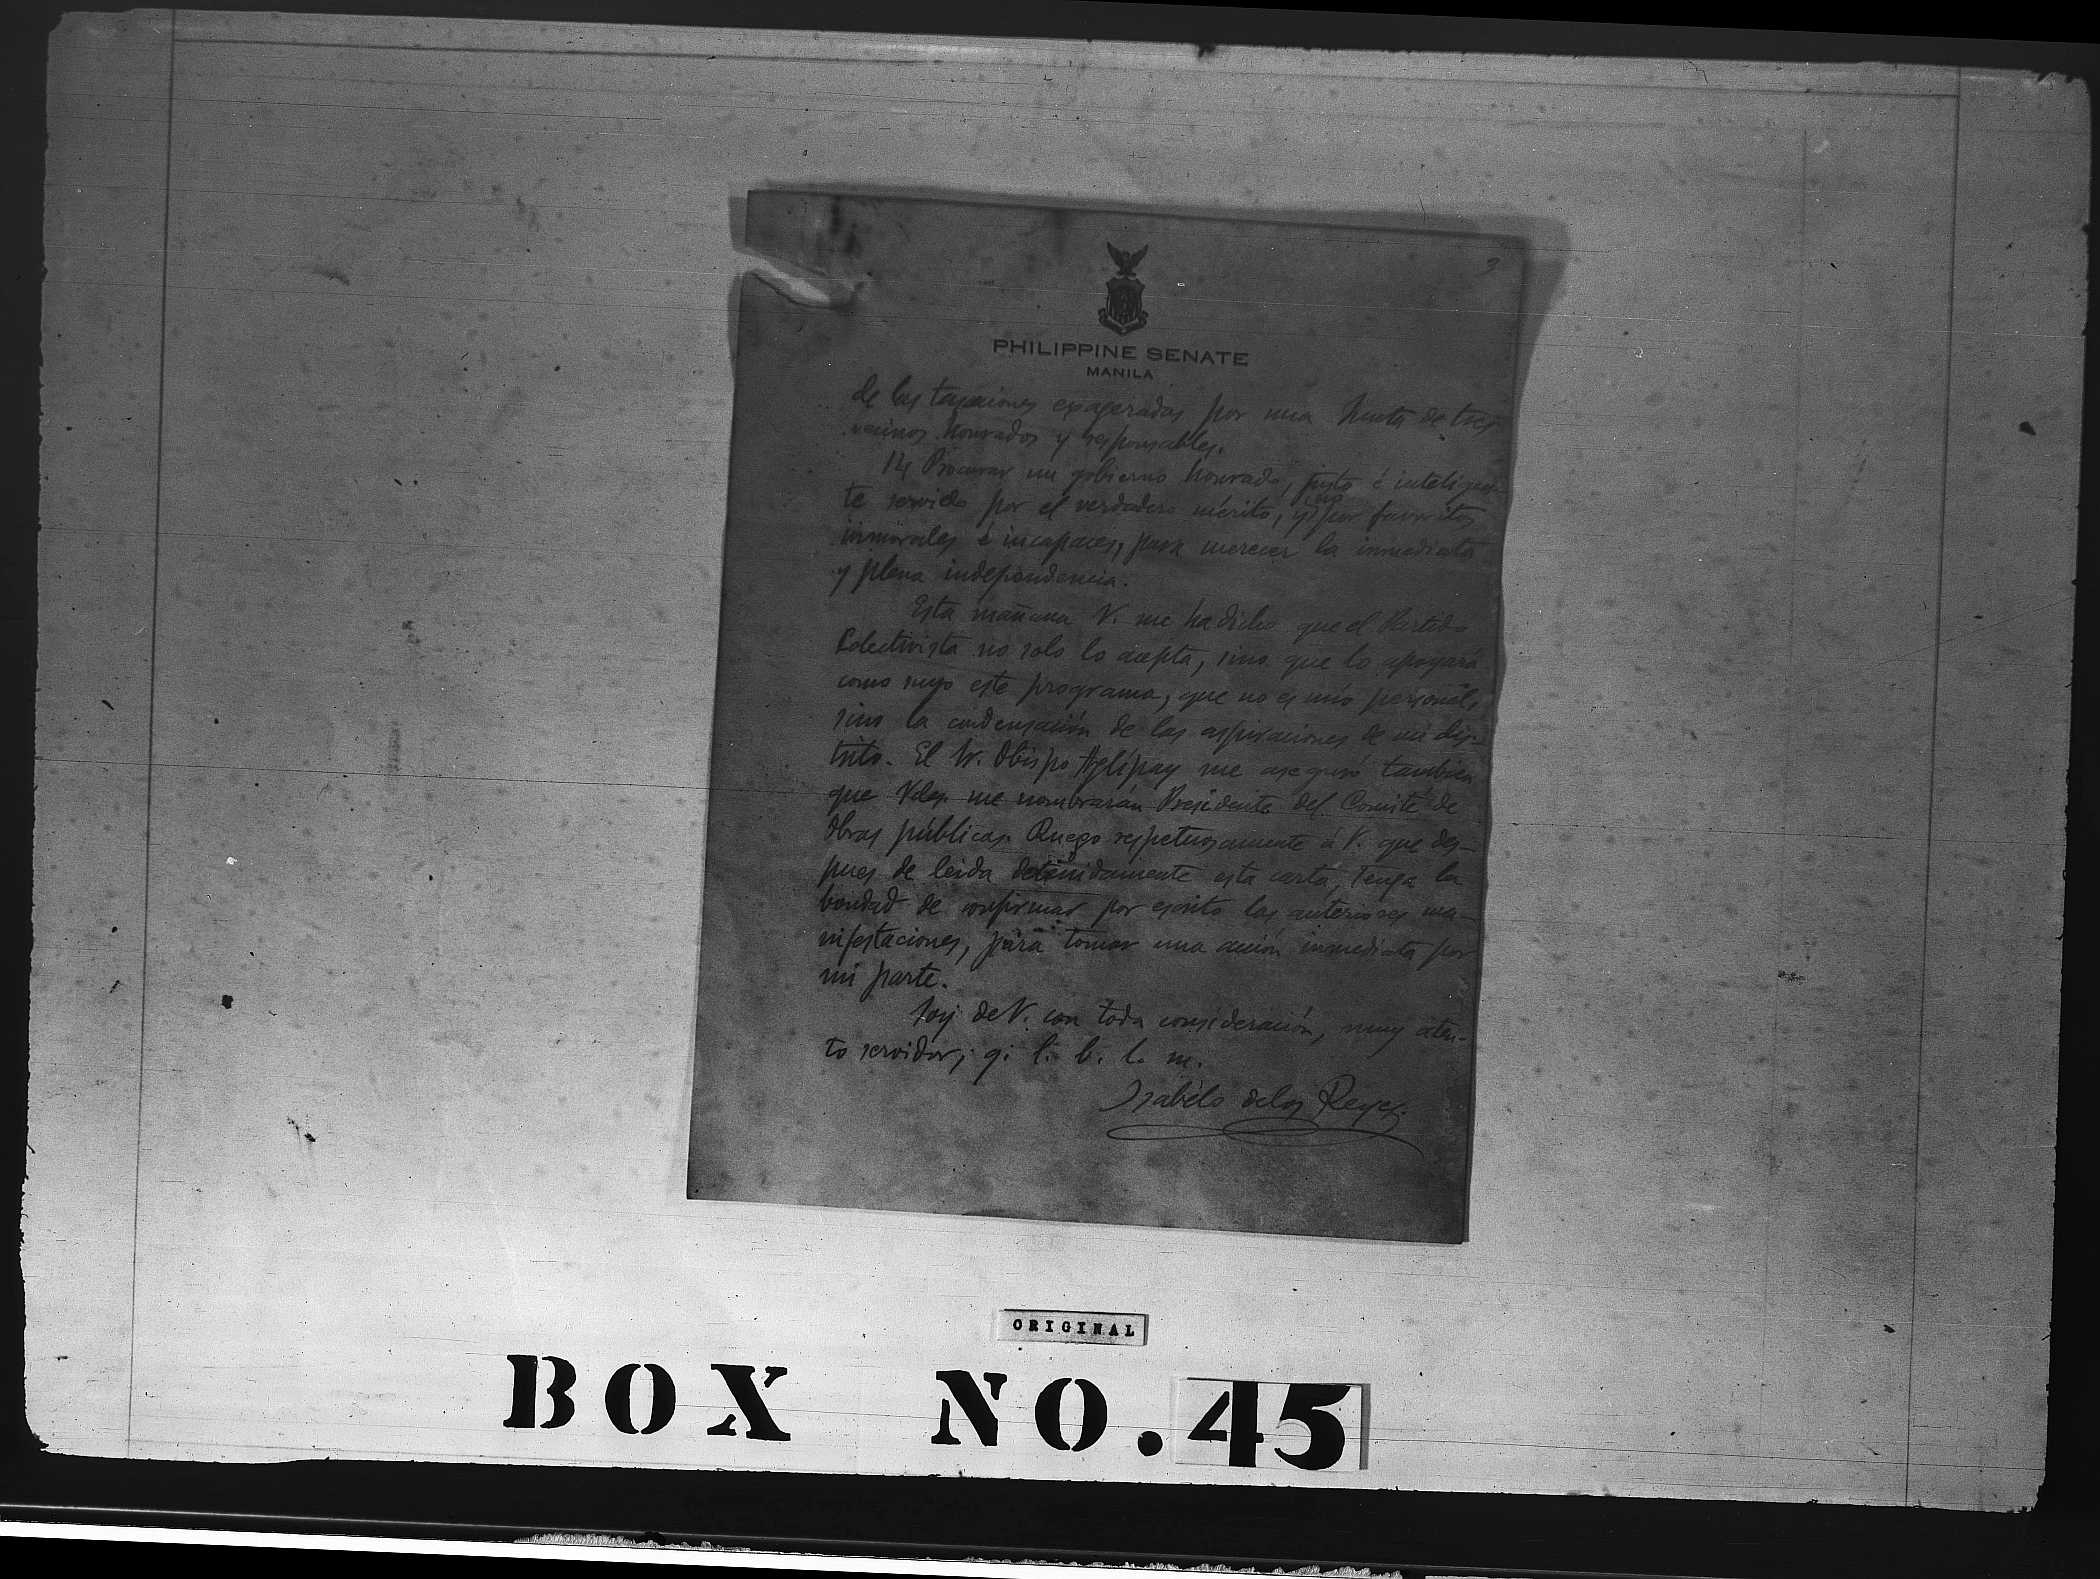 3
PHILIPPINE SENATE
MANILA
de las tasaciones exageradas por una Junta de tres
vecinos honrados y responsables.
14 Procurar un gobierno honrado, justo é inteligen-
te servido por el verdadero mérito, y no por favoritos
inmorales é incapaces, para merecer la inmediata
y plena independencia.
Esta mañana V. me ha dicho que el Partido
Colectivista no solo lo acepta, sino que lo apoyará
como suyo este programa, que no es mío personal,
sino la condensación de las aspiraciones de mi dis-
trito. El Sr. Obispo Aglipay me aseguró tambien
que Vdes. me nombrarán Presidente del Comité de
Obras públicas. Ruego respetuosamente á V. que des-
pues de leida detenidamente esta carta, tenga la
bondad de confirmar por escrito las anteriores ma-
nifestaciones, para tomar una acción inmediata por
mi parte.
Soy de V. con toda consideración, muy aten-
to servidor, q. l. b. l. m.
Isabelo de los Reyes.
ORIGINAL
BOX NO. 45